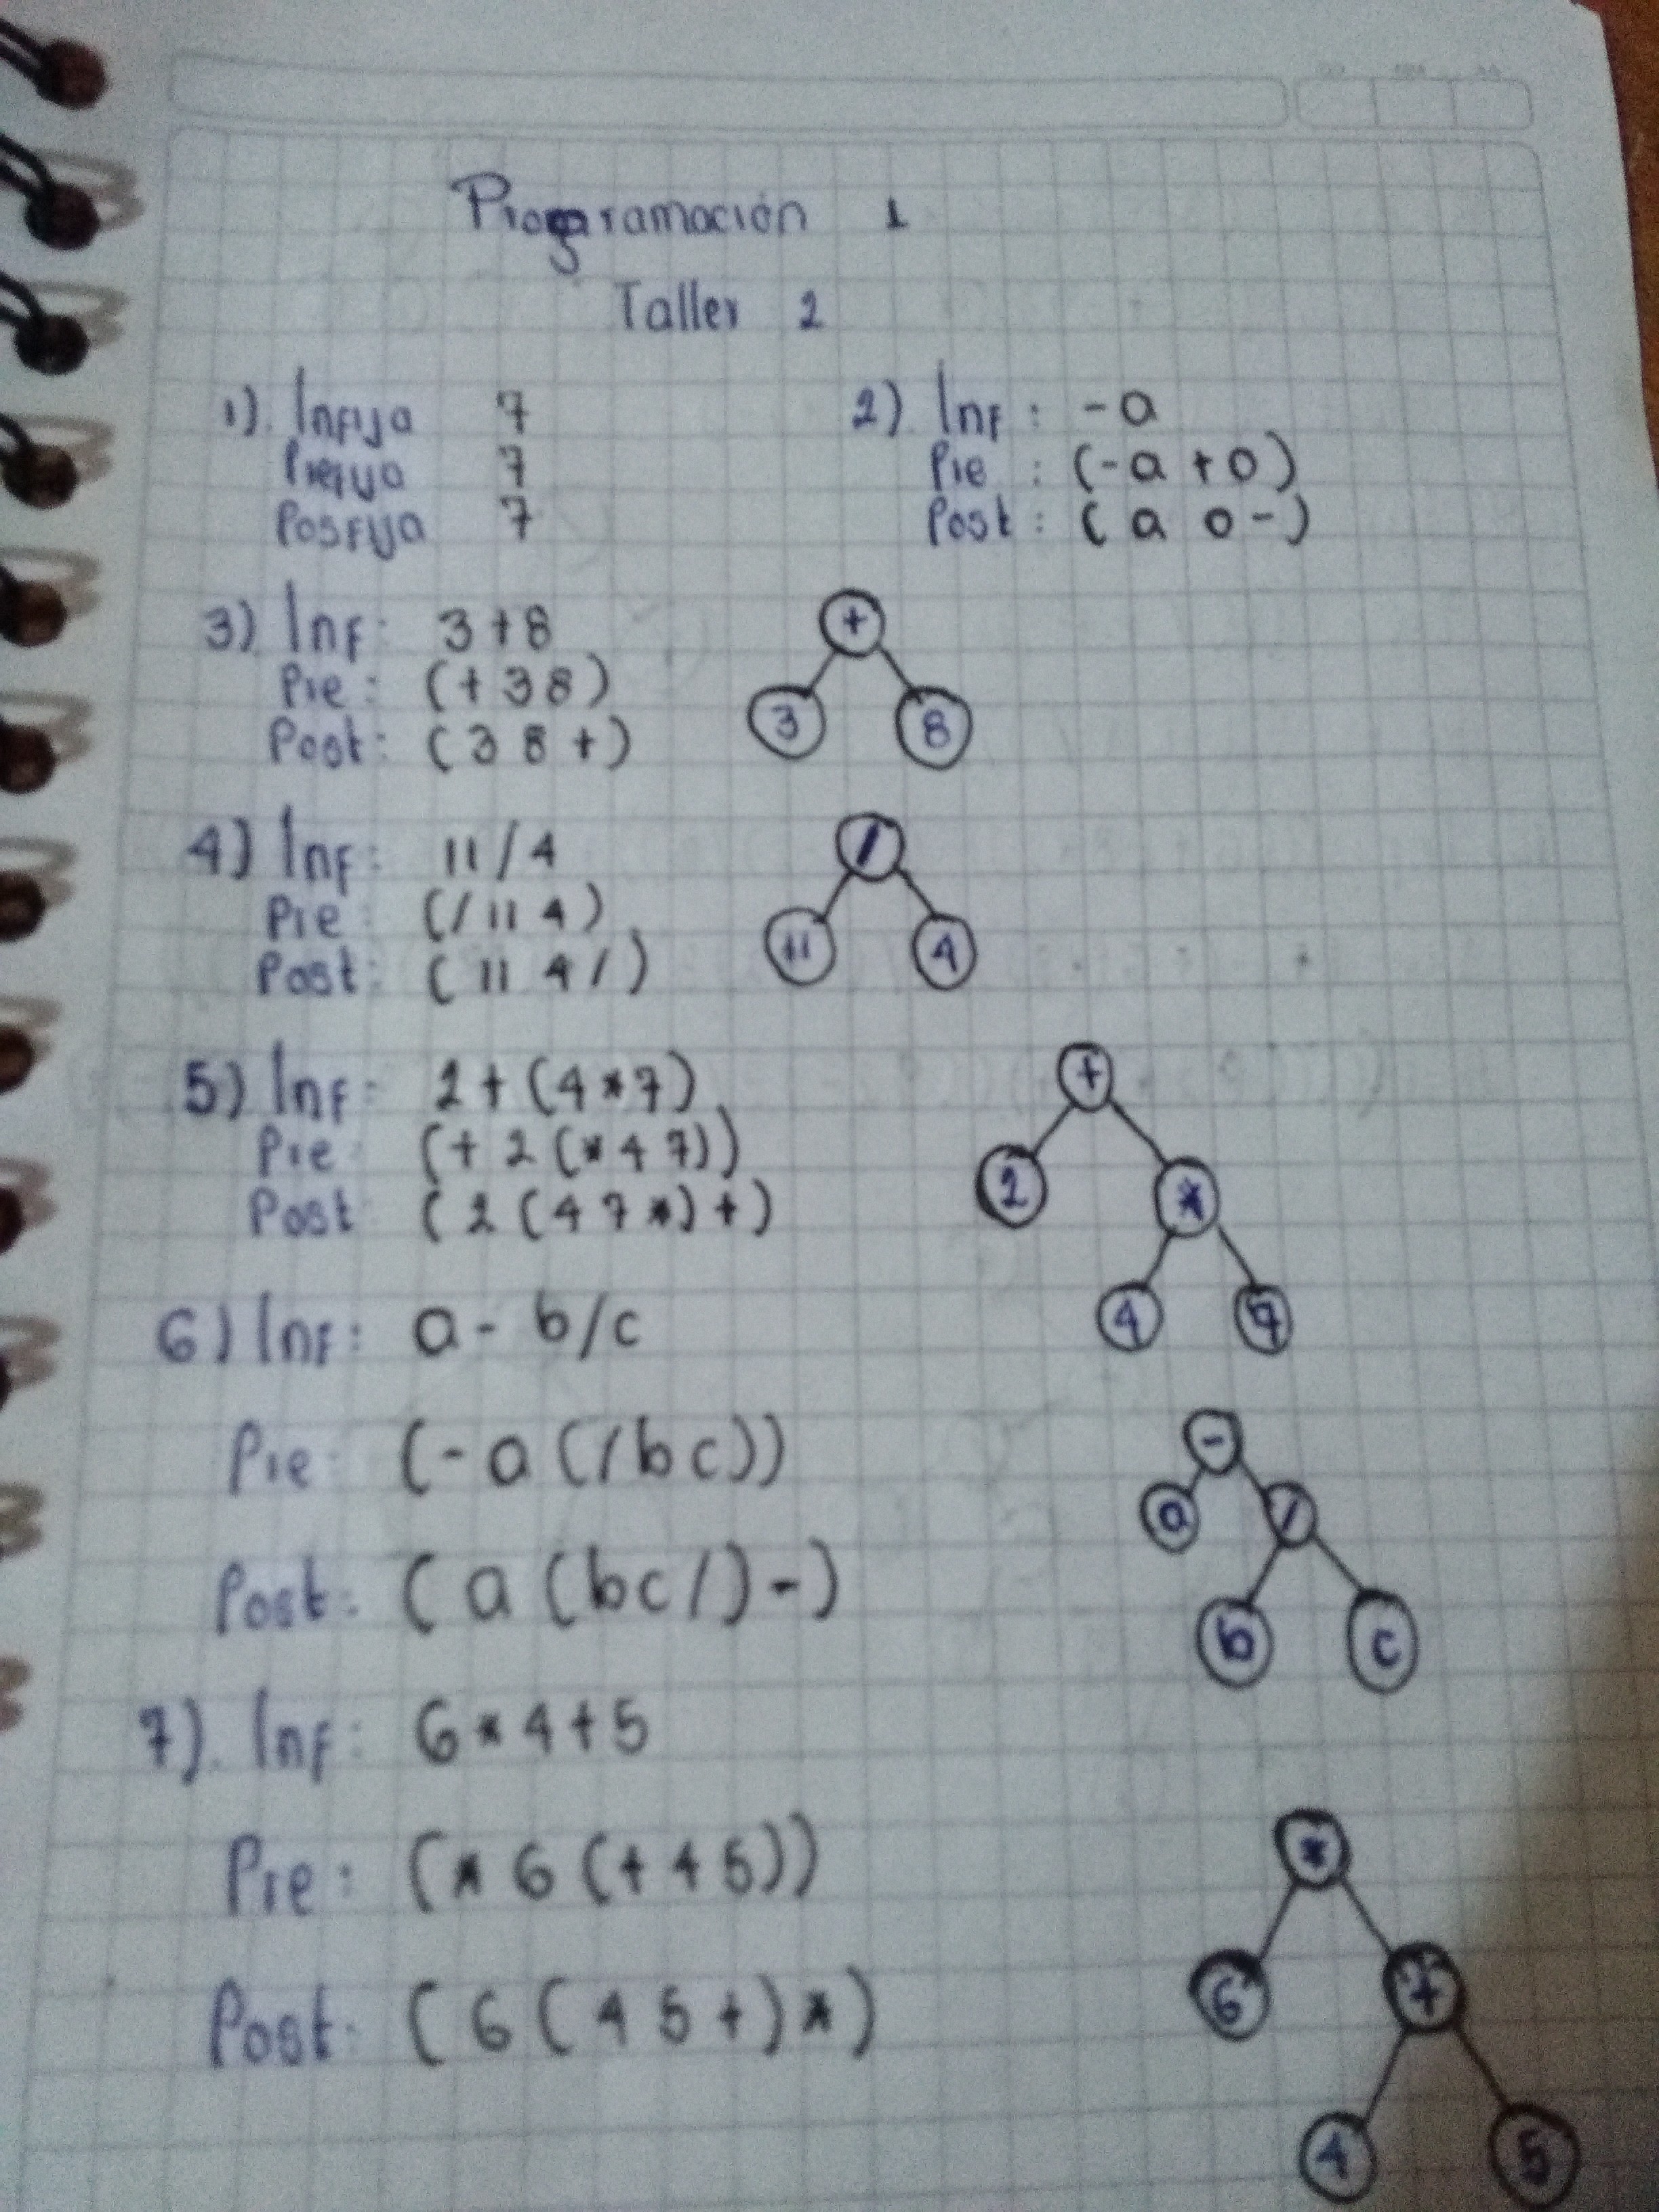 Programación 1
Taller 2
1). Infija 7
Prefija 7
Posfija 7
2). Inf: -a
Pre: (-a+0)
Post: (a 0 -)
3) Inf: 3+8
Pre: (+ 3 8)
Post: (3 8 +)
+
3 8
4) Inf: 11/4
Pre: (/ 11 4)
Post: (11 4 /)
/
11 4
5) Inf: 2+(4*7)
Pre: (+ 2 (* 4 7))
Post: (2 (4 7 *) +)
+
2 *
4 7
6) Inf: a - b/c
Pre: (- a (/ b c))
Post: (a (b c /) -)
-
a /
b c
7). Inf: 6*4+5
Pre: (* 6 (+ 4 5))
Post: (6 (4 5 +) *)
*
6 +
4 5